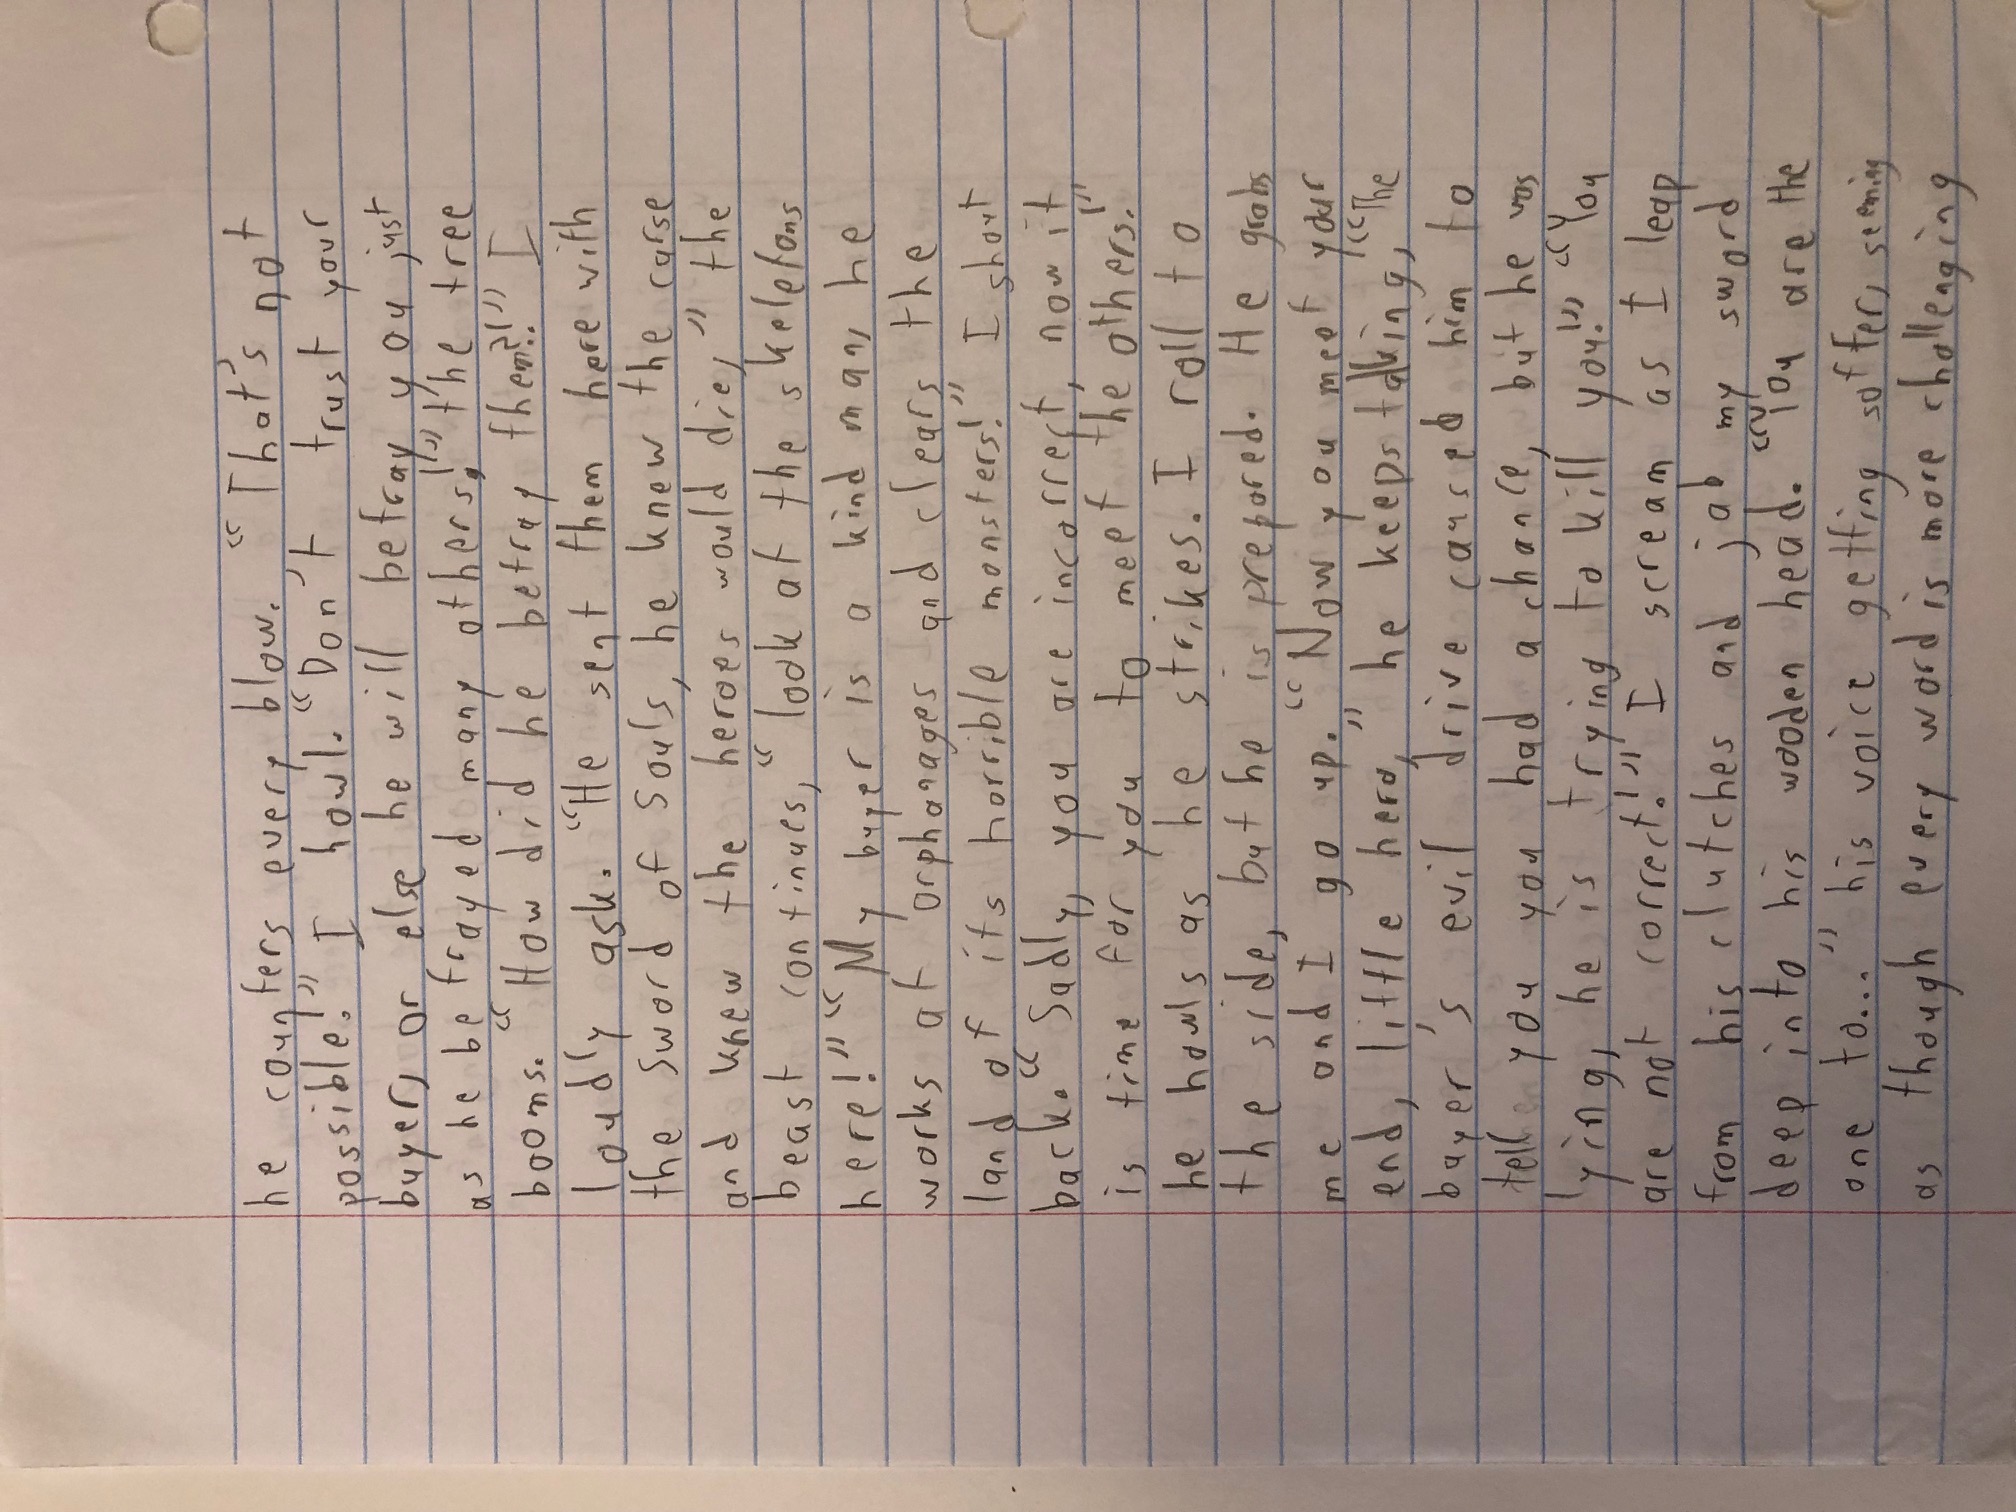 he counters every blow. "That's not
possible!" I howl. "Don't trust your
buyer, or else he will betray you just
as he betrayed many others!" the tree
booms. "How did he betray them?!" I
loudly ask. "He sent them here with
the Sword of Souls, he knew the curse
and knew the heroes would die," the
beast continues, "look at the skeletons
here!" "My buyer is a kind man, he
works at orphanages and clears the
land of its horrible monsters!" I shout
back. "Sadly, you are incorrect, now it
is time for you to meet the others!"
he howls as he strikes. I roll to
the side, but he is prepared. He grabs
me and I go up. "Now you meet your
end, little hero," he keeps talking, "The
buyer's evil drive caused him to
tell you you had a chance, but he was
lying, he is trying to kill you!" "You
are not correct!" I scream as I leap
from his clutches and jab my sword
deep into his wooden head. "You are the
one to..." his voice getting softer, seeming
as though every word is more challenging